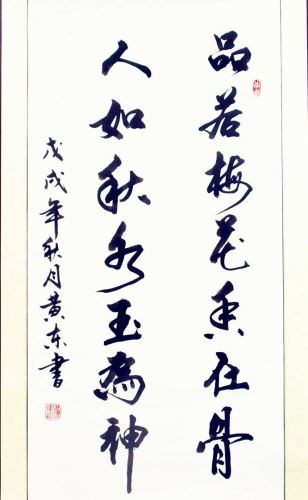 品若梅花香在骨
人如秋水玉為神
戊戌年秋月黄东書